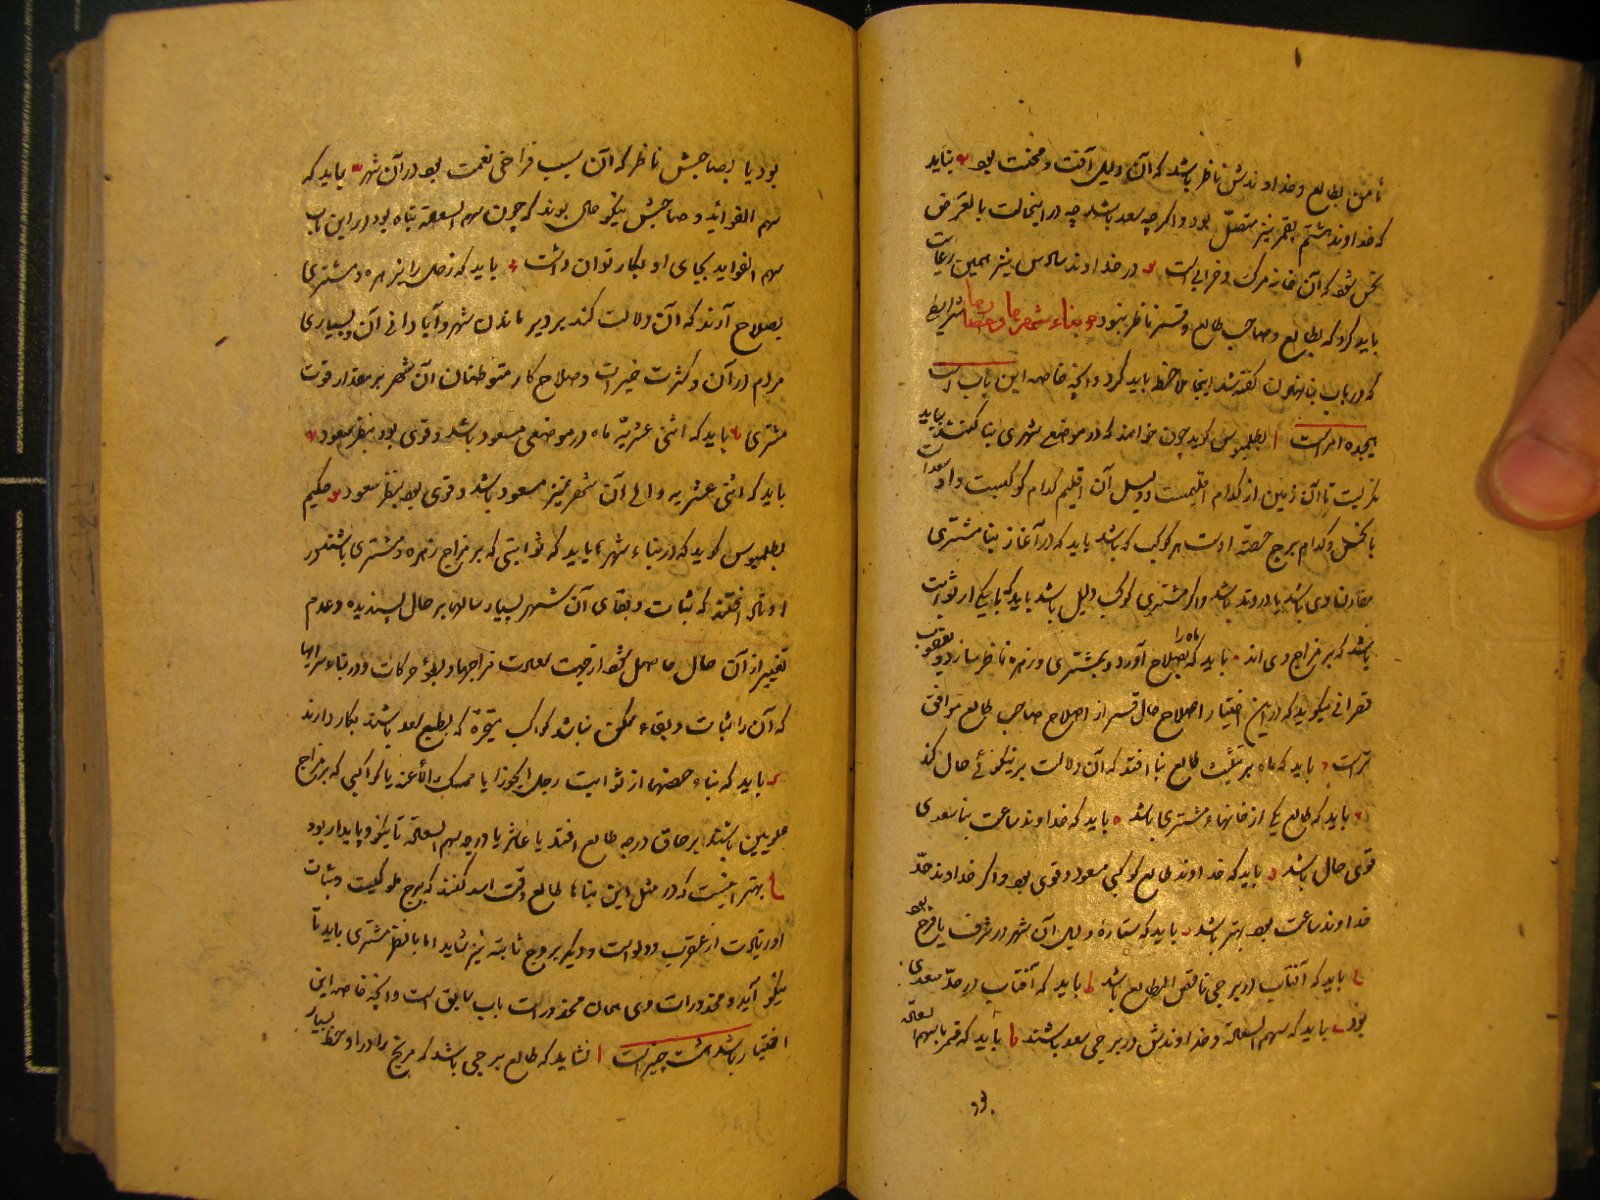 ثامن بطالع و خداوندش ناظر باشد که آن دلیل آفت و محنت بود و نباید
که خداوند هشتم بقمر نیز متصل بود و اگرچه سعد باشد چه در اینحالت بالعرض
نحس شود که آن خانه مرک و خرابی است و در خداوند سادس نیز همین رعایت
باید کرد که بطالع و صاحب طالع و قمر ناظر نبود بناء شهرها و حصارها شرایط
که در باب بنا نهادن گفته شد اینجا ملاحظه باید کرد و آنچه خاصه این باب است
هیجده امر است ا بطلمیوس گوید چون خواهند که در موضعی شهری بنا کنند باید
نگریست تا آن زمین از کدام اقلیمست و دلیل آن اقلیم کدام کوکبست و او سعد است
یا نحس و کدام برج حصه اوست هر کوکب که باشد باید که در آغاز بنا مشتری
مقارن وی باشد یا در وتد باشد و اگر مشتری کوکب دلیل باشد باید که با یکی از ثوابت
باشد که بر مزاج وی اند باید که ماه را بصلاح آورد و بمشتری و زهره ناظر سازد و یعقوب
قصرانی میگوید که در این اختیار اصلاح حال قمر از اصلاح صاحب طالع موافق
تر است باید که ماه بر تثلیث طالع بنا افتد که آن دلالت بر نیکوئی حال کند
باید که طالع یکی از خانهاء مشتری باشد باید که خداوند ساعت بنا سعدی
قوی حال باشد و باید که خداوند طالع کوکبی مسعود و قوی بود و اگر خداوند حد
خداوند ساعت بود بهتر باشد باید که ستاره دلیل آن شهر در شرف یا فرح بود
باید که آفتاب در برجی ناقص المطالع باشد ط باید که آفتاب در حد سعدی
بود باید که سهم السعاده و خداوندش در برجی سعد باشند یا باید که قمر با سهم السعاده
بود
بود یا بصاحبش ناظر که آن سبب فراخی نعمت بود در آن شهر باید که
سهم الفواید و صاحبش نیکو حال بوند که چون سهم السعاده تباه بود در این باب
سهم الفواید بجای او بکار توان داشت باید که زحل را زهره و مشتری
بصلاح آرند که آن دلالت کند بر دیر ماندن شهر و آبادانی آن و بسیاری
مردم در آن و کثرت خیرات و صلاح کار متوطنان آن شهر بر مقدار قوت
مشتری باید که اثنی عشریه ماه در موضعی مسعود باشد و قوی بود بنظر سعود
باید که اثنی عشریه والی آن شهر نیز مسعود باشد و قوی بود بنظر سعود حکیم
بطلمیوس گوید که در بناء شهرها باید که ثوابتی که بر مزاج زهره و مشتری باشند در
اوتاد افتند که ثبات و بقای آن شهر بسیار سالها بر حال پسندیده و عدم
تغییر از آن حال حاصل شود از جهت سعادت مزاجها و بطؤ حرکات و در بناء سراها
که آن را ثبات و بقاء ممکن نباشد کواکب متحیره که بطبع سعد باشند بکار دارند
باید که بناء حصنها از ثوابت رجل الجوزا یا ممسک الاعنه یا کواکبی که بر مزاج
علویین باشند بر حاق درجه طالع افتد یا عاشر یا درجه سهم السعاده تا نیکو و پایدار بود
بهتر آنست که در مثل این بناها طالع وقت اسد کنند که برج ملوکیست و ثبات
او زیادت از عقرب و دلو است و دیگر بروج ثابته نیز شاید اما با نظر مشتری باید تا
نیکو آید و محذورات وی همان محذورات باب سابق است و آنچه خاصه این
اختیار باشد هشت چیز است ا نشاید که طالع برجی باشد که مریخ را در او حظ بسیار